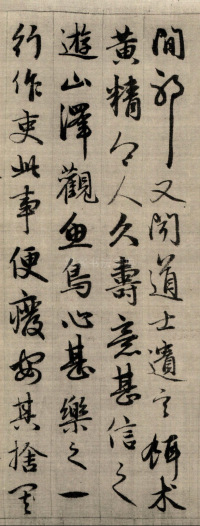 間耶又聞道士遺言餌术
黄精令人久壽意甚信之
遊山澤觀魚鳥心甚樂之一
行作吏此事便廢安其捨其